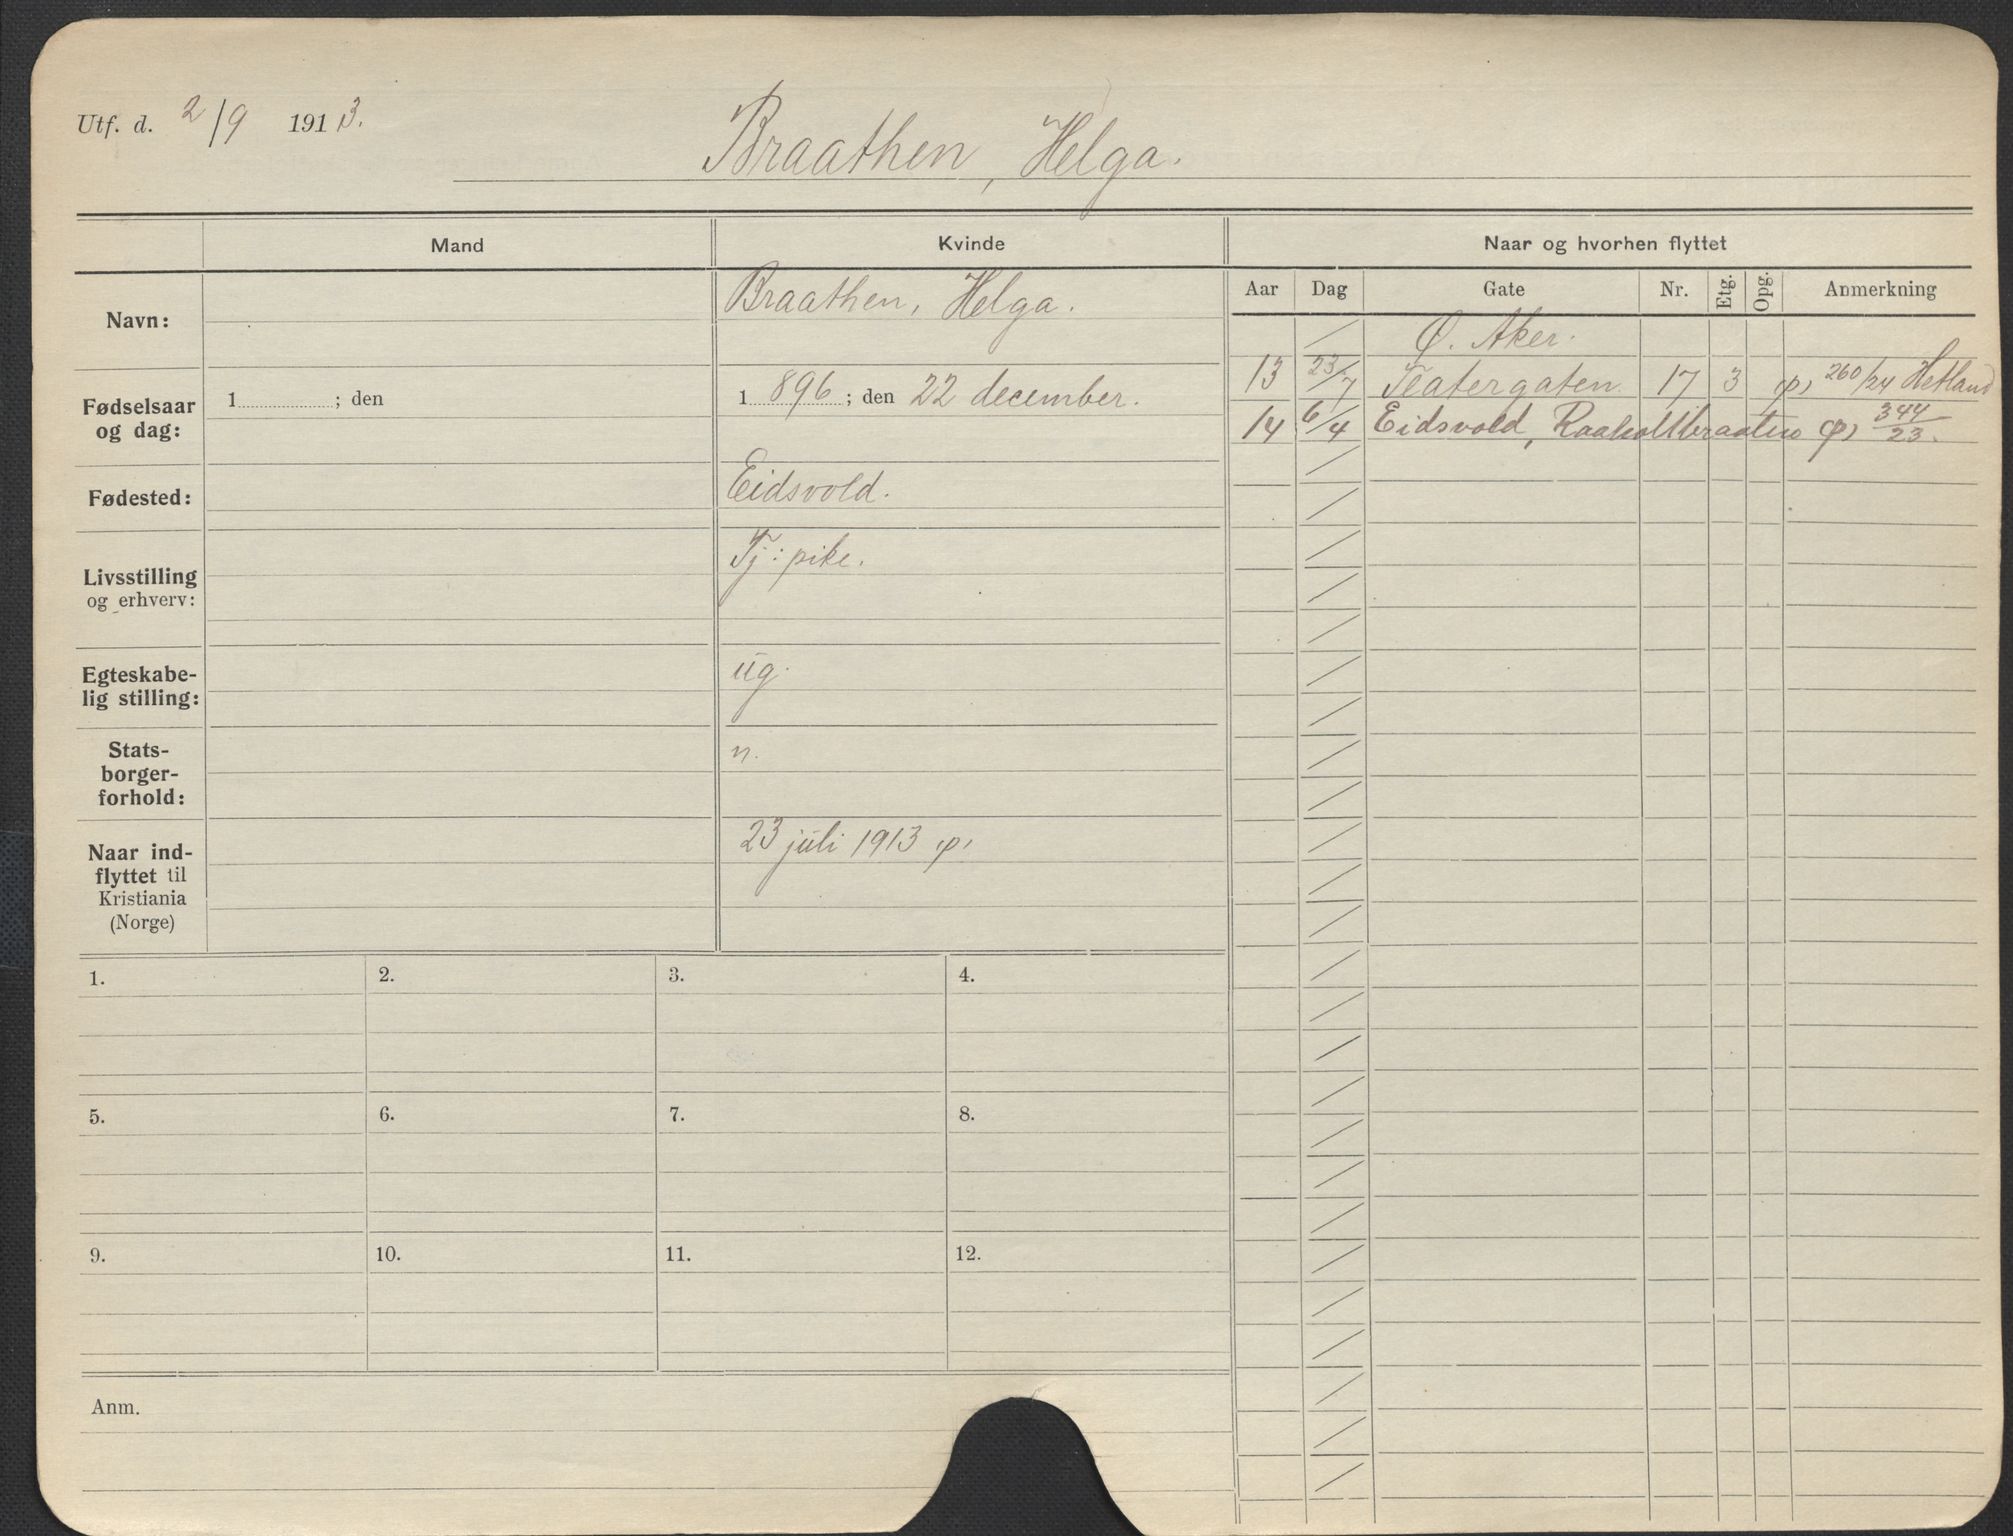 Utf. d. 2/9 1913.
Braathen, Helga.
Mand Kvinde Naar og hvorhen flyttet
Aar Dag Gate Nr. Etg. Opg. Anmerkning
Navn: Braathen, Helga.
Ø. Aker.
13 23/7 Teatergaten 17 3 260/24 Hetland
Fødselsaar og dag: 1 ; den 1 896 ; den 22 december.
14 6/4 Eidsvold, Raaholtbraaten 344/23.
Fødested: Eidsvold.
Livsstilling og erhverv: Tj: pike.
Egteskabe-
lig stilling: ug.
Stats-
borger-
forhold: n.
Naar ind-
flyttet til
Kristiania
(Norge) 23 juli 1913
1. 2. 3. 4.
5. 6. 7. 8.
9. 10. 11. 12.
Anm.